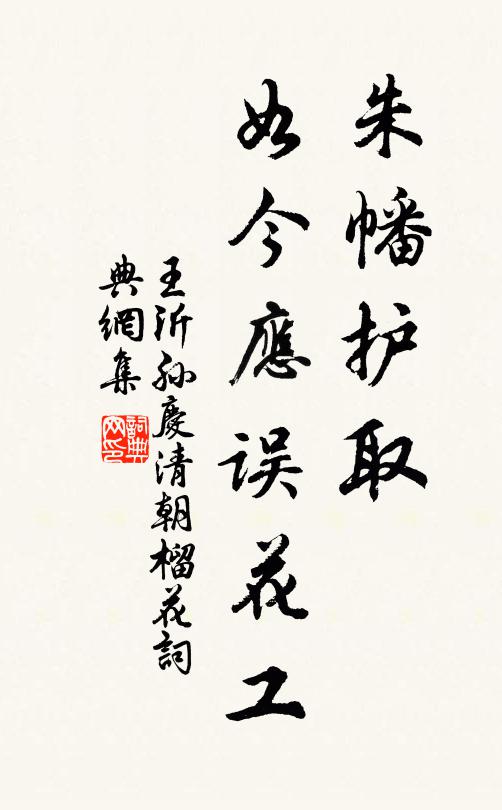 朱幡护取
如今應误花工
王沂孙慶清朝榴花詞
典網集
詞典
网印